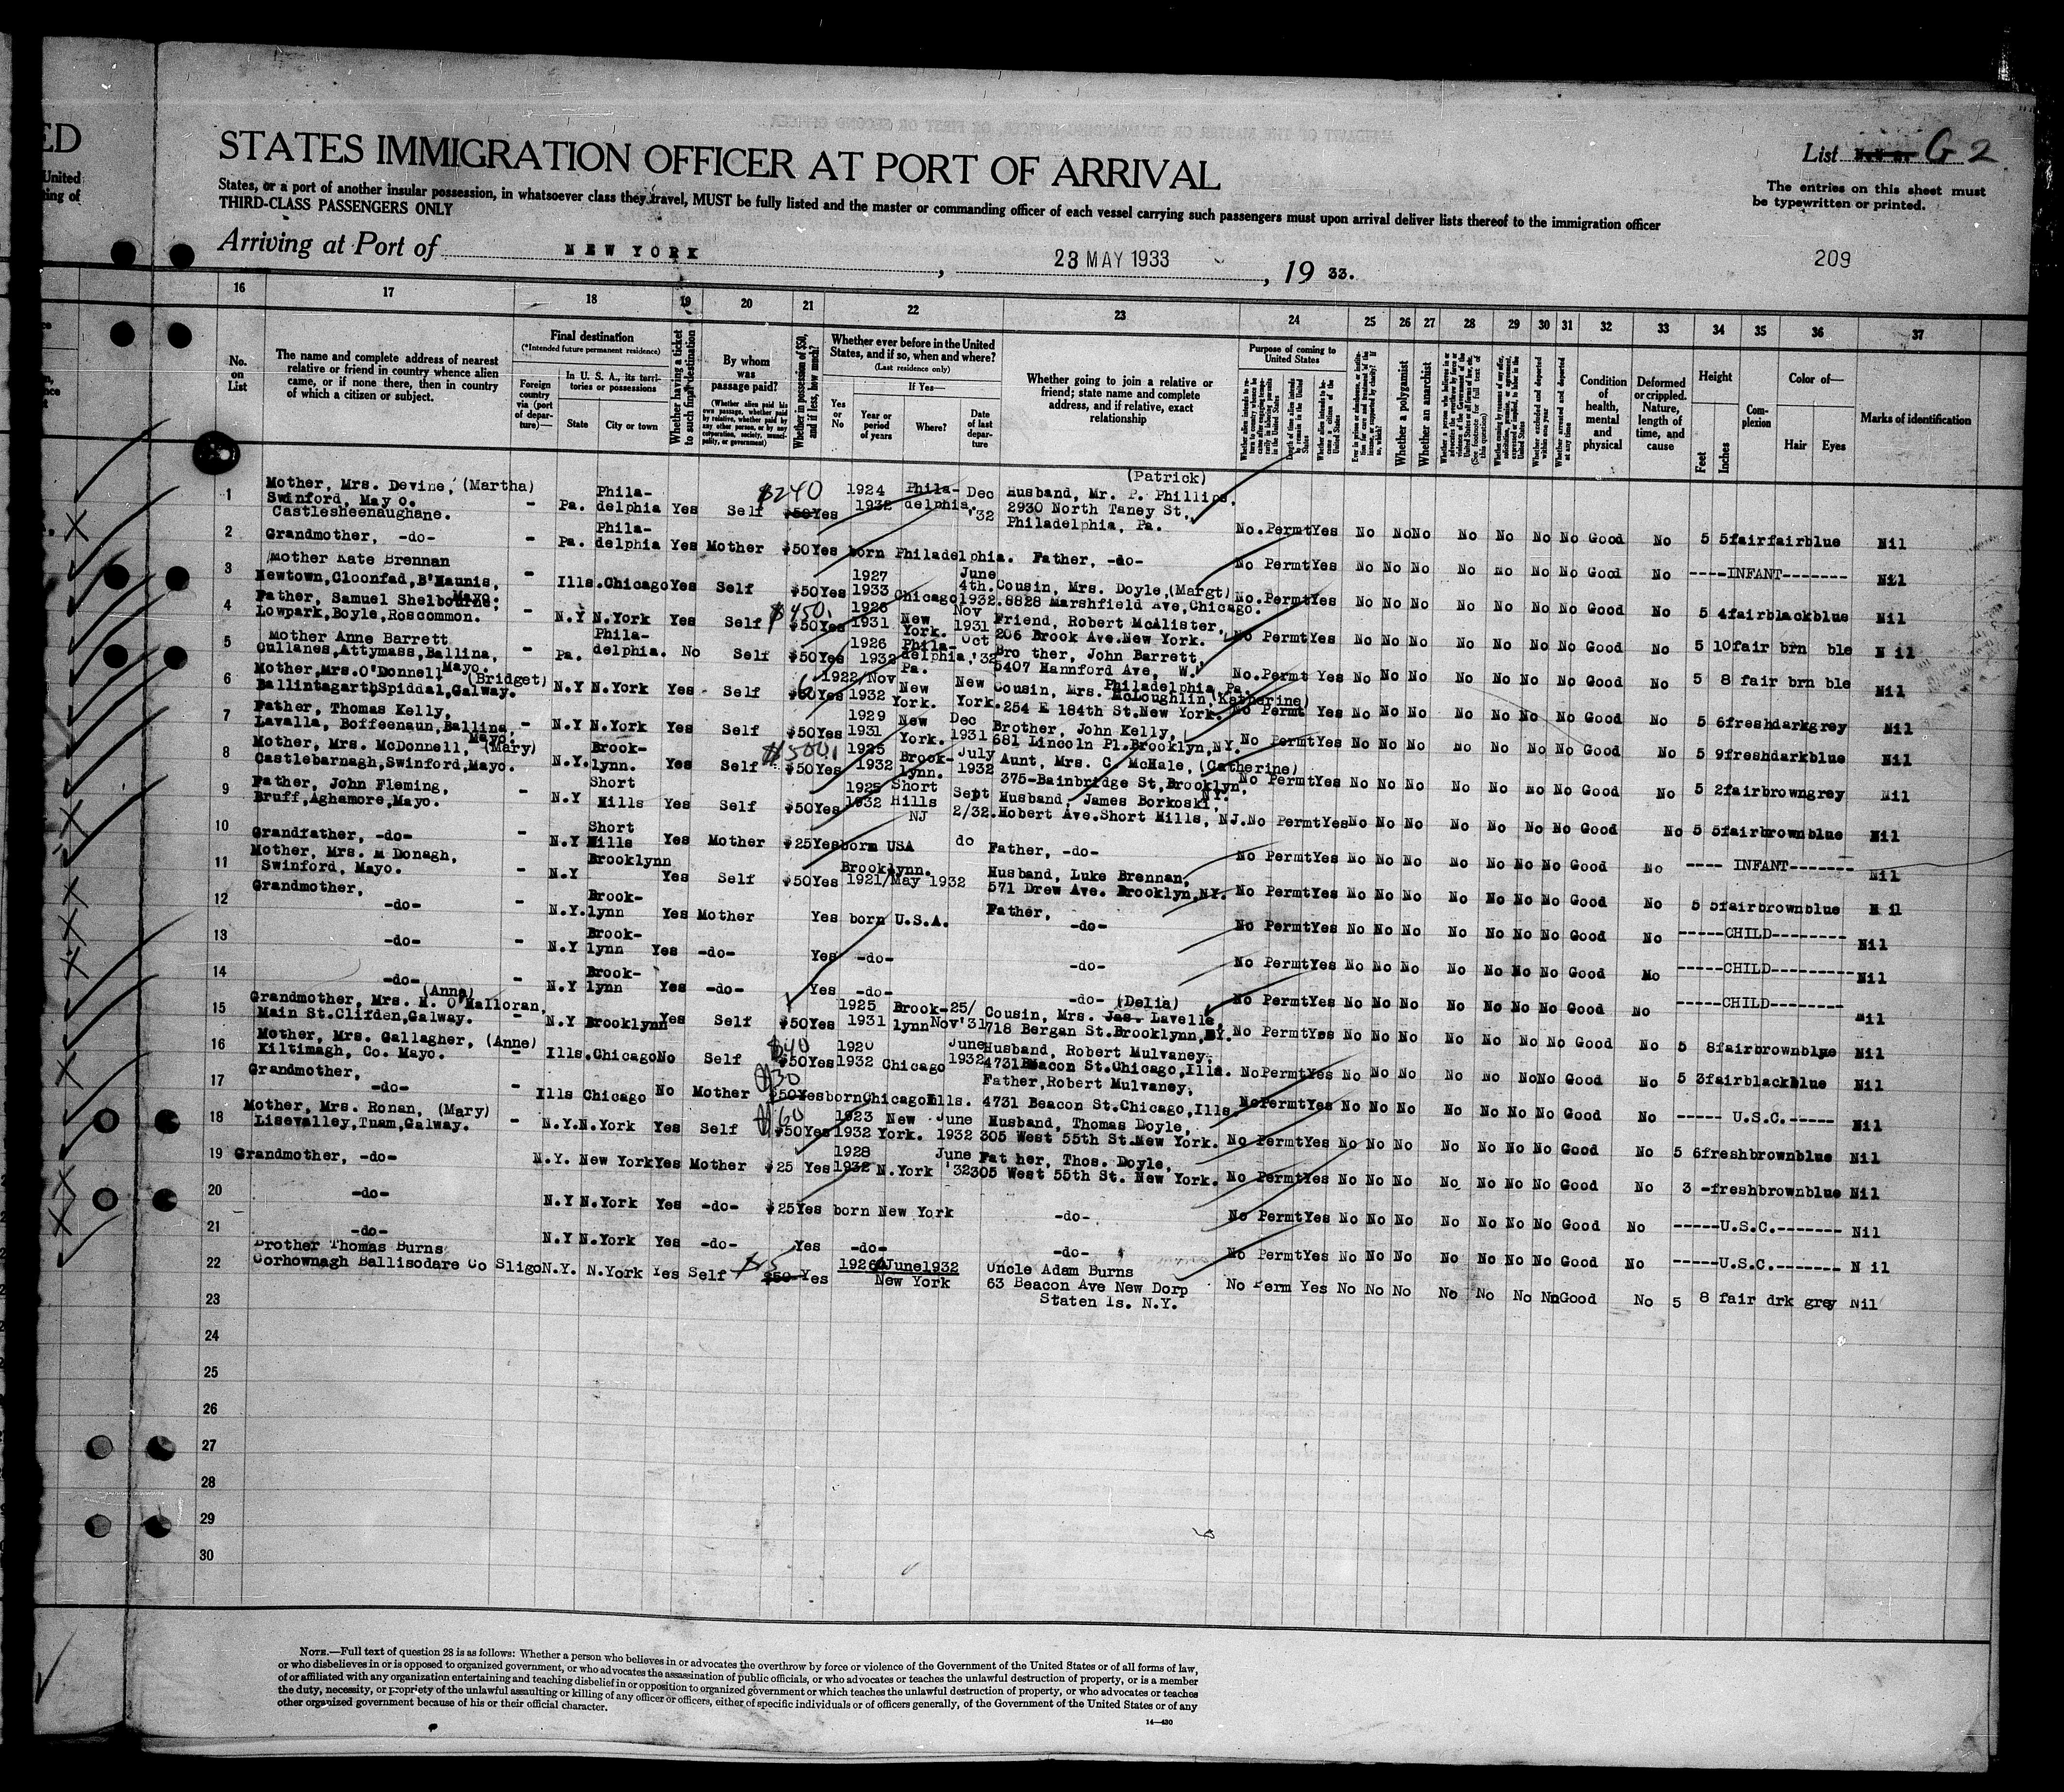 ED
United
ing of
STATES IMMIGRATION OFFICER AT PORT OF ARRIVAL
List G 2
States, or a port of another insular possession, in whatsoever class they travel, MUST be fully listed and the master or commanding officer of each vessel carrying such passengers must upon arrival deliver lists thereof to the immigration officer
THIRD-CLASS PASSENGERS ONLY
The entries on this sheet must
be typewritten or printed.
Arriving at Port of NEW YORK, 23 MAY 1933, 19 33.
209
16 17 18 19 20 21 22 23 24 25 26 27 28 29 30 31 32 33 34 35 36 37
No. on List
The name and complete address of nearest relative or friend in country whence alien came, or if none there, then in country of which a citizen or subject.
Final destination
(*Intended future permanent residence)
Foreign country via (port of departure)—
In U. S. A., its territories or possessions
State
City or town
Whether having a ticket to such final destination
By whom was passage paid?
(Whether alien paid his own passage, whether paid by relative, whether paid by any other person, or by any corporation, society, municipality, or government)
Whether in possession of $50, and if less, how much?
Whether ever before in the United States, and if so, when and where?
(Last residence only)
Yes or No
If Yes—
Year or period of years
Where?
Date of last departure
Whether going to join a relative or friend; state name and complete address, and if relative, exact relationship
Purpose of coming to United States
Whether a polygamist
Whether an anarchist
Condition of health, mental and physical
Deformed or crippled. Nature, length of time, and cause
Height
Feet
Inches
Complexion
Color of—
Hair
Eyes
Marks of identification
1 Mother, Mrs. Devine, (Martha) Swinford, Mayo. Castlesheenaughane. - Pa. Philadelphia Yes Self $240 $50 Yes 1924 1932 Philadelphia. Dec '32 Husband, Mr. P. Phillips, (Patrick) 2930 North Taney St, Philadelphia, Pa. No. Permt Yes No No No No No No No Good No 5 5 fair fair blue Nil
2 Grandmother, -do- - Pa. Philadelphia Yes Mother $50 Yes born Philadelphia. Father, -do- No Permt Yes No No No No No No No Good No ----INFANT------- Nil
3 Mother Kate Brennan Newtown,Cloonfad,B'Haunis, Mayo. - Ills. Chicago Yes Self $50 Yes 1927 1933 Chicago June 4th. 1932. Cousin, Mrs. Doyle, (Margt) 8828 Marshfield Ave, Chicago. No. Permt Yes No No No No No No No Good No 5 4 fair black blue Nil
4 Father, Samuel Shelbourne, Lowpark, Boyle, Roscommon. - N.Y N.York Yes Self $450. $50 Yes 1926 1931 New York. Nov 1931 Friend, Robert McAlister, 206 Brook Ave. New York. No Permt Yes No No No No No No No Good No 5 10 fair brn ble Nil
5 Mother Anne Barrett Cullanes, Attymass, Ballina, Mayo. - Pa. Philadelphia. No Self $50 Yes 1926 1932 Philadelphia, Pa. Oct '32 Brother, John Barrett, 5407 Hannford Ave, W. Philadelphia Pa. No. Permt Yes No No No No No No No Good No 5 8 fair brn ble Nil
6 Mother, Mrs. O'Donnell (Bridget) Ballintagarth Spiddal, Galway. - N.Y N.York Yes Self Yes 1922/Nov 1932 New York. New York. Cousin, Mrs. McLoughlin, (Katherine) 254 E 184th St. New York. No Permt Yes No No No No No No No Good No 5 6 fresh dark grey Nil
7 Father, Thomas Kelly, Lavalla, Boffeenaun, Ballina, Mayo. - N.Y N.York Yes Self $50 Yes 1929 1931 New York. Dec 1931 Brother, John Kelly, 681 Lincoln Pl. Brooklyn, NY. No Permt Yes No No No No No No No Good No 5 9 fresh dark blue Nil
8 Mother, Mrs. McDonnell, (Mary) Castlebarnagh, Swinford, Mayo. - N.Y. Brooklynn. Yes Self $500. $50 Yes 1925 1932 Brooklynn. July 1932 Aunt, Mrs. C. McHale, (Catherine) 375-Bainbridge St, Brooklyn, NY. No Permt Yes No No No No No No No Good No 5 2 fair brown grey Nil
9 Father, John Fleming, Bruff, Aghamore, Mayo. - N.Y Short Hills Yes Self $50 Yes 1925 1932 Short Hills NJ Sept 2/32. Husband, James Borkoski, Hobert Ave. Short Hills, NJ. No Permt Yes No No No No No No No Good No 5 5 fair brown blue Nil
10 Grandfather, -do- - N.Y Short Hills Yes Mother $25 Yes born USA do Father, -do- No Permt Yes No No No No No No No Good No ---- INFANT------- Nil
11 Mother, Mrs. M Donagh, Swinford, Mayo. - N.Y Brooklynn Yes Self $50 Yes Brooklynn. 1921/May 1932 Husband, Luke Brennan, 571 Drew Ave. Brooklyn, NY. No Permt Yes No No No No No No No Good No 5 5 fair brown blue Nil
12 Grandmother, -do- - N.Y. Brooklynn Yes Mother Yes born U.S.A. Father, -do- No Permt Yes No No No No No No No Good No -----CHILD-------- Nil
13 -do- - N.Y Brooklynn Yes -do- Yes -do- -do- No Permt Yes No No No No No No No Good No -----CHILD-------- Nil
14 -do- - N.Y Brooklynn Yes -do- Yes -do- -do- No Permt Yes No No No No No No No Good No -----CHILD-------- Nil
15 Grandmother, Mrs. H. O'Halloran, (Anne) Main St. Clifden, Galway. - N.Y Brooklynn Yes Self $50 Yes 1925 1931 Brooklynn 25/Nov '31 Cousin, Mrs. Jas. Lavelle, (Delia) 718 Bergan St. Brooklynn, NY. No Permt Yes No No No No No No No Good No 5 8 fair brown blue Nil
16 Mother, Mrs. Gallagher, (Anne) Kiltimagh, Co. Mayo. - Ills. Chicago No Self $40 $50 Yes 1920 1932 Chicago June 1932 Husband, Robert Mulvaney, 4731 Beacon St. Chicago, Ills. No Permt Yes No No No No No No No Good No 5 3 fair black blue Nil
17 Grandmother, -do- - Ills Chicago No Mother $30 $50 Yes born Chicago Ills. Father, Robert Mulvaney, 4731 Beacon St. Chicago, Ills. No Permt Yes No No No No No No No Good No ----- U.S.C.----- Nil
18 Mother, Mrs. Ronan, (Mary) Lisevalley, Tuam, Galway. - N.Y. N.York Yes Self $60 $50 Yes 1923 1932 New York. June 1932 Husband, Thomas Doyle, 305 West 55th St. New York. No Permt Yes No No No No No No No Good No 5 6 fresh brown blue Nil
19 Grandmother, -do- N.Y. New York Yes Mother $25 Yes 1928 1932 N.York June '32 Father, Thos. Doyle, 305 West 55th St. New York. No Permt Yes No No No No No No No Good No 3 - fresh brown blue Nil
20 -do- N.Y N.York Yes -do- $25 Yes born New York -do- No Permt Yes No No No No No No No Good No -----U.S.C.------- Nil
21 -do- N.Y N.York Yes -do- Yes -do- -do- No Permt Yes No No No No No No No Good No -----U.S.C.------- Nil
22 Brother Thomas Burns Corhownagh Ballisodare Co Sligo N.Y. N.York Yes Self $15 $50 Yes 1926 June 1932 New York Uncle Adam Burns 63 Beacon Ave New Dorp Staten Is. N.Y. No Perm Yes No No No No No No No Good No 5 8 fair drk grey Nil
23
24
25
26
27
28
29
30
NOTE.—Full text of question 28 is as follows: Whether a person who believes in or advocates the overthrow by force or violence of the Government of the United States or of all forms of law,
or who disbelieves in or is opposed to organized government, or who advocates the assassination of public officials, or who advocates or teaches the unlawful destruction of property, or is a member
of or affiliated with any organization entertaining and teaching disbelief in or opposition to organized government or which teaches the unlawful destruction of property, or who advocates or teaches
the duty, necessity, or propriety of the unlawful assaulting or killing of any officer or officers, either of specific individuals or of officers generally, of the Government of the United States or of any
other organized government because of his or their official character.
14—430